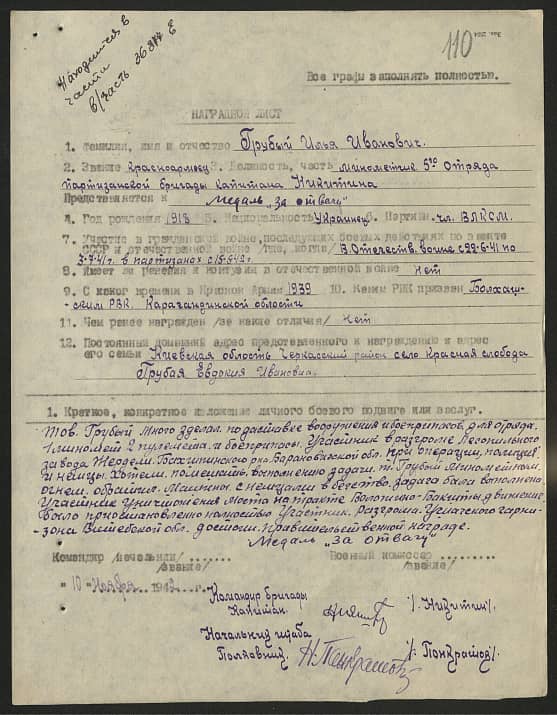 Находится в
части
в/часть 36844 Е
110
Все графы заполнять полностью.
НАГРАДНОЙ ЛИСТ
1. Фамилия, имя и отчество Грубый Илья Иванович.
2. Звание Красноармеец 3. Должность, часть минометчик 5го отряда
партизанской бригады капитана Никитина
Представляется к медаль "за отвагу"
4. Год рождения 1918 5. Национальность Украинец 6. Партийн. чл. ВЛКСМ.
7. Участие в гражданской войне, последующих боевых действиях по защите
СССР и отечественной войне /где, когда/ В Отечеств. войне с 22-6-41 по
3-7-41г. в партизанах с 15-6-42г.
8. Имеет ли ранения и контузии в отечественной войне нет
9. С какого времени в Красной Армии 1939 10. Каким РВК призван Болхаш-
ским РВК. Карагандинской области
11. Чем ранее награжден /за какие отличия/ нет
12. Постоянный домашний адрес представленного к награждению и адрес
его семьи Киевская область Черкасский район село Красная слобода
Грубая Евдокия Ивановна.
1. Краткое, конкретное изложение личного боевого подвига или заслуг.
Тов. Грубый много зделал по доставке вооружения и боеприпасов, для отряда.
1 миномет 2 пулемета и боеприпасы. Участник в разгроме Лесопильного
завода. Жердели. Барановической обл. При операции, полиция
и немцы. Хотели, помешать, выполнению задачи т. Грубый минометным,
огнем, обратил. с немцами в бегство. Задача была выполнена.
Участник уничтожения моста на тракте Воложино-Бакшты движение
было приостановлено полностью Участник. Разгрома. гарни-
зона Витебской обл. достоин. Правительственной награде.
Медаль "за отвагу"
Командир /начальник/ Военный комиссар
/звание/ /звание/
"10" Ноября 1942 г.
Командир бригады
Капитан. /. Никитин/.
Начальник штаба
Полковник /. Понкрашов/.